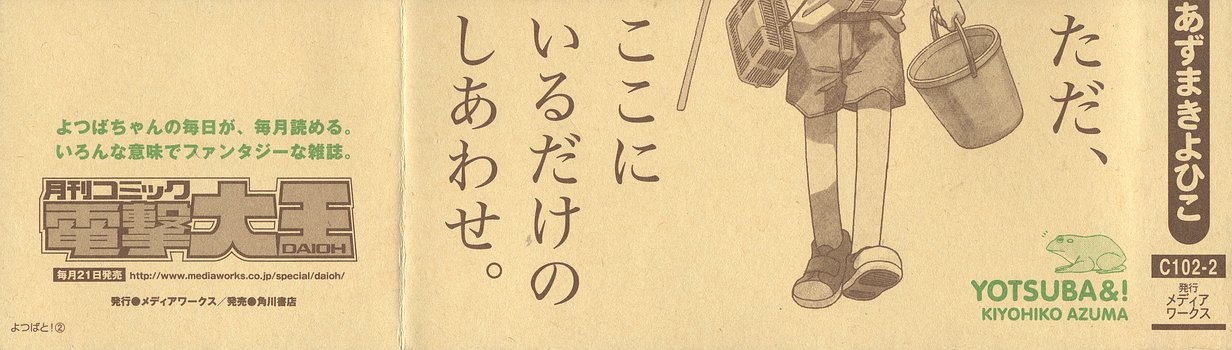 あずまきよひこ
C102-2
発行
メディア
ワークス
ただ、
ここに
いるだけの
しあわせ。
YOTSUBA&!
KIYOHIKO AZUMA
よつばちゃんの毎日が、毎月読める。
いろんな意味でファンタジーな雑誌。
月刊コミック
電撃大王
DAIOH
毎月21日発売 http://www.mediaworks.co.jp/special/daioh/
発行●メディアワークス／発売●角川書店
よつばと!②